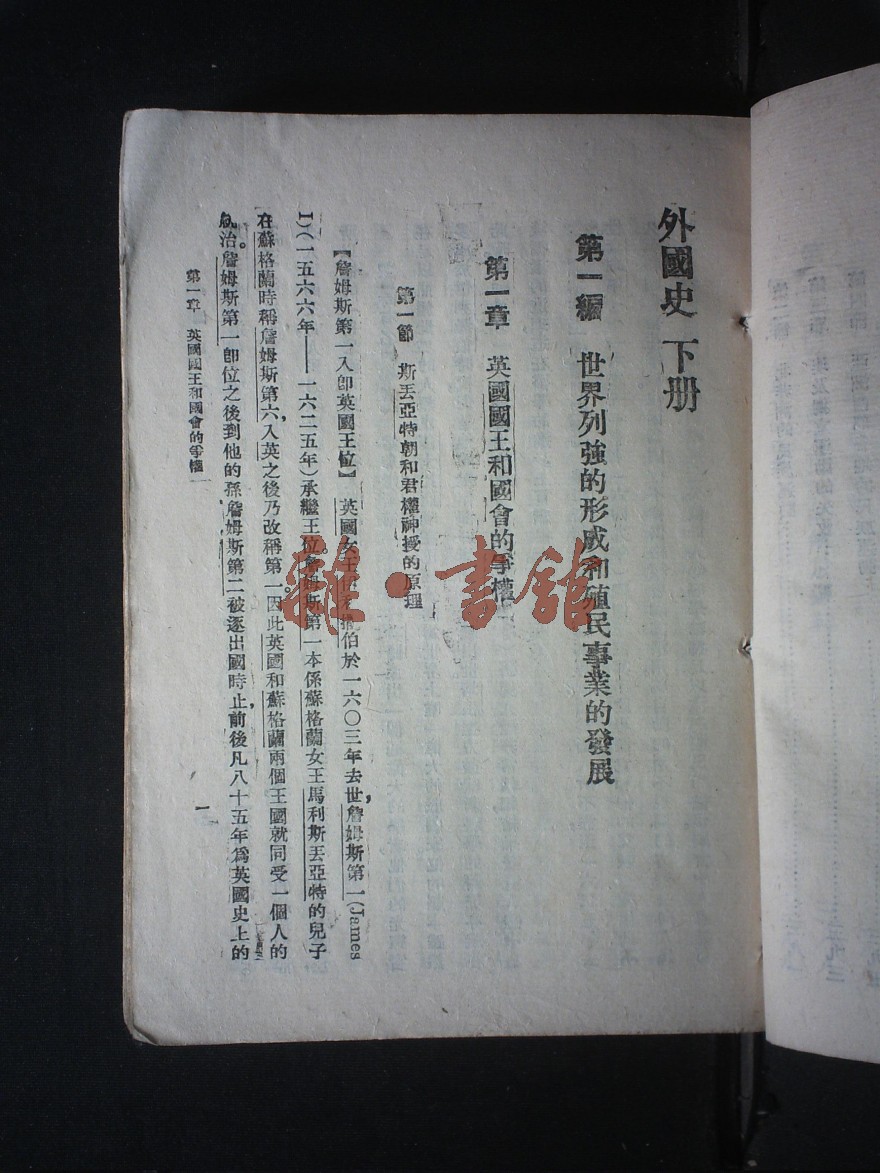 外國史 下册
第一編 世界列強的形成和殖民事業的發展
第一章 英國國王和國會的爭權
第一節 斯丟亞特朝和君權神授的原理
【詹姆斯第一入卽英國王位】 英國女王伊利撒伯於一六〇三年去世，詹姆斯第一(James
I)(一五六六年——一六二五年)承繼王位詹姆斯第一本係蘇格蘭女王馬利斯丟亞特的兒子
在蘇格蘭時稱詹姆斯第六，入英之後乃改稱第一。因此英國和蘇格蘭兩個王國就同受一個人的
統治。詹姆斯第一卽位之後到他的孫詹姆斯第二被逐出國時止，前後凡八十五年爲英國史上的
第一章 英國國王和國會的爭權
一
雜·書館